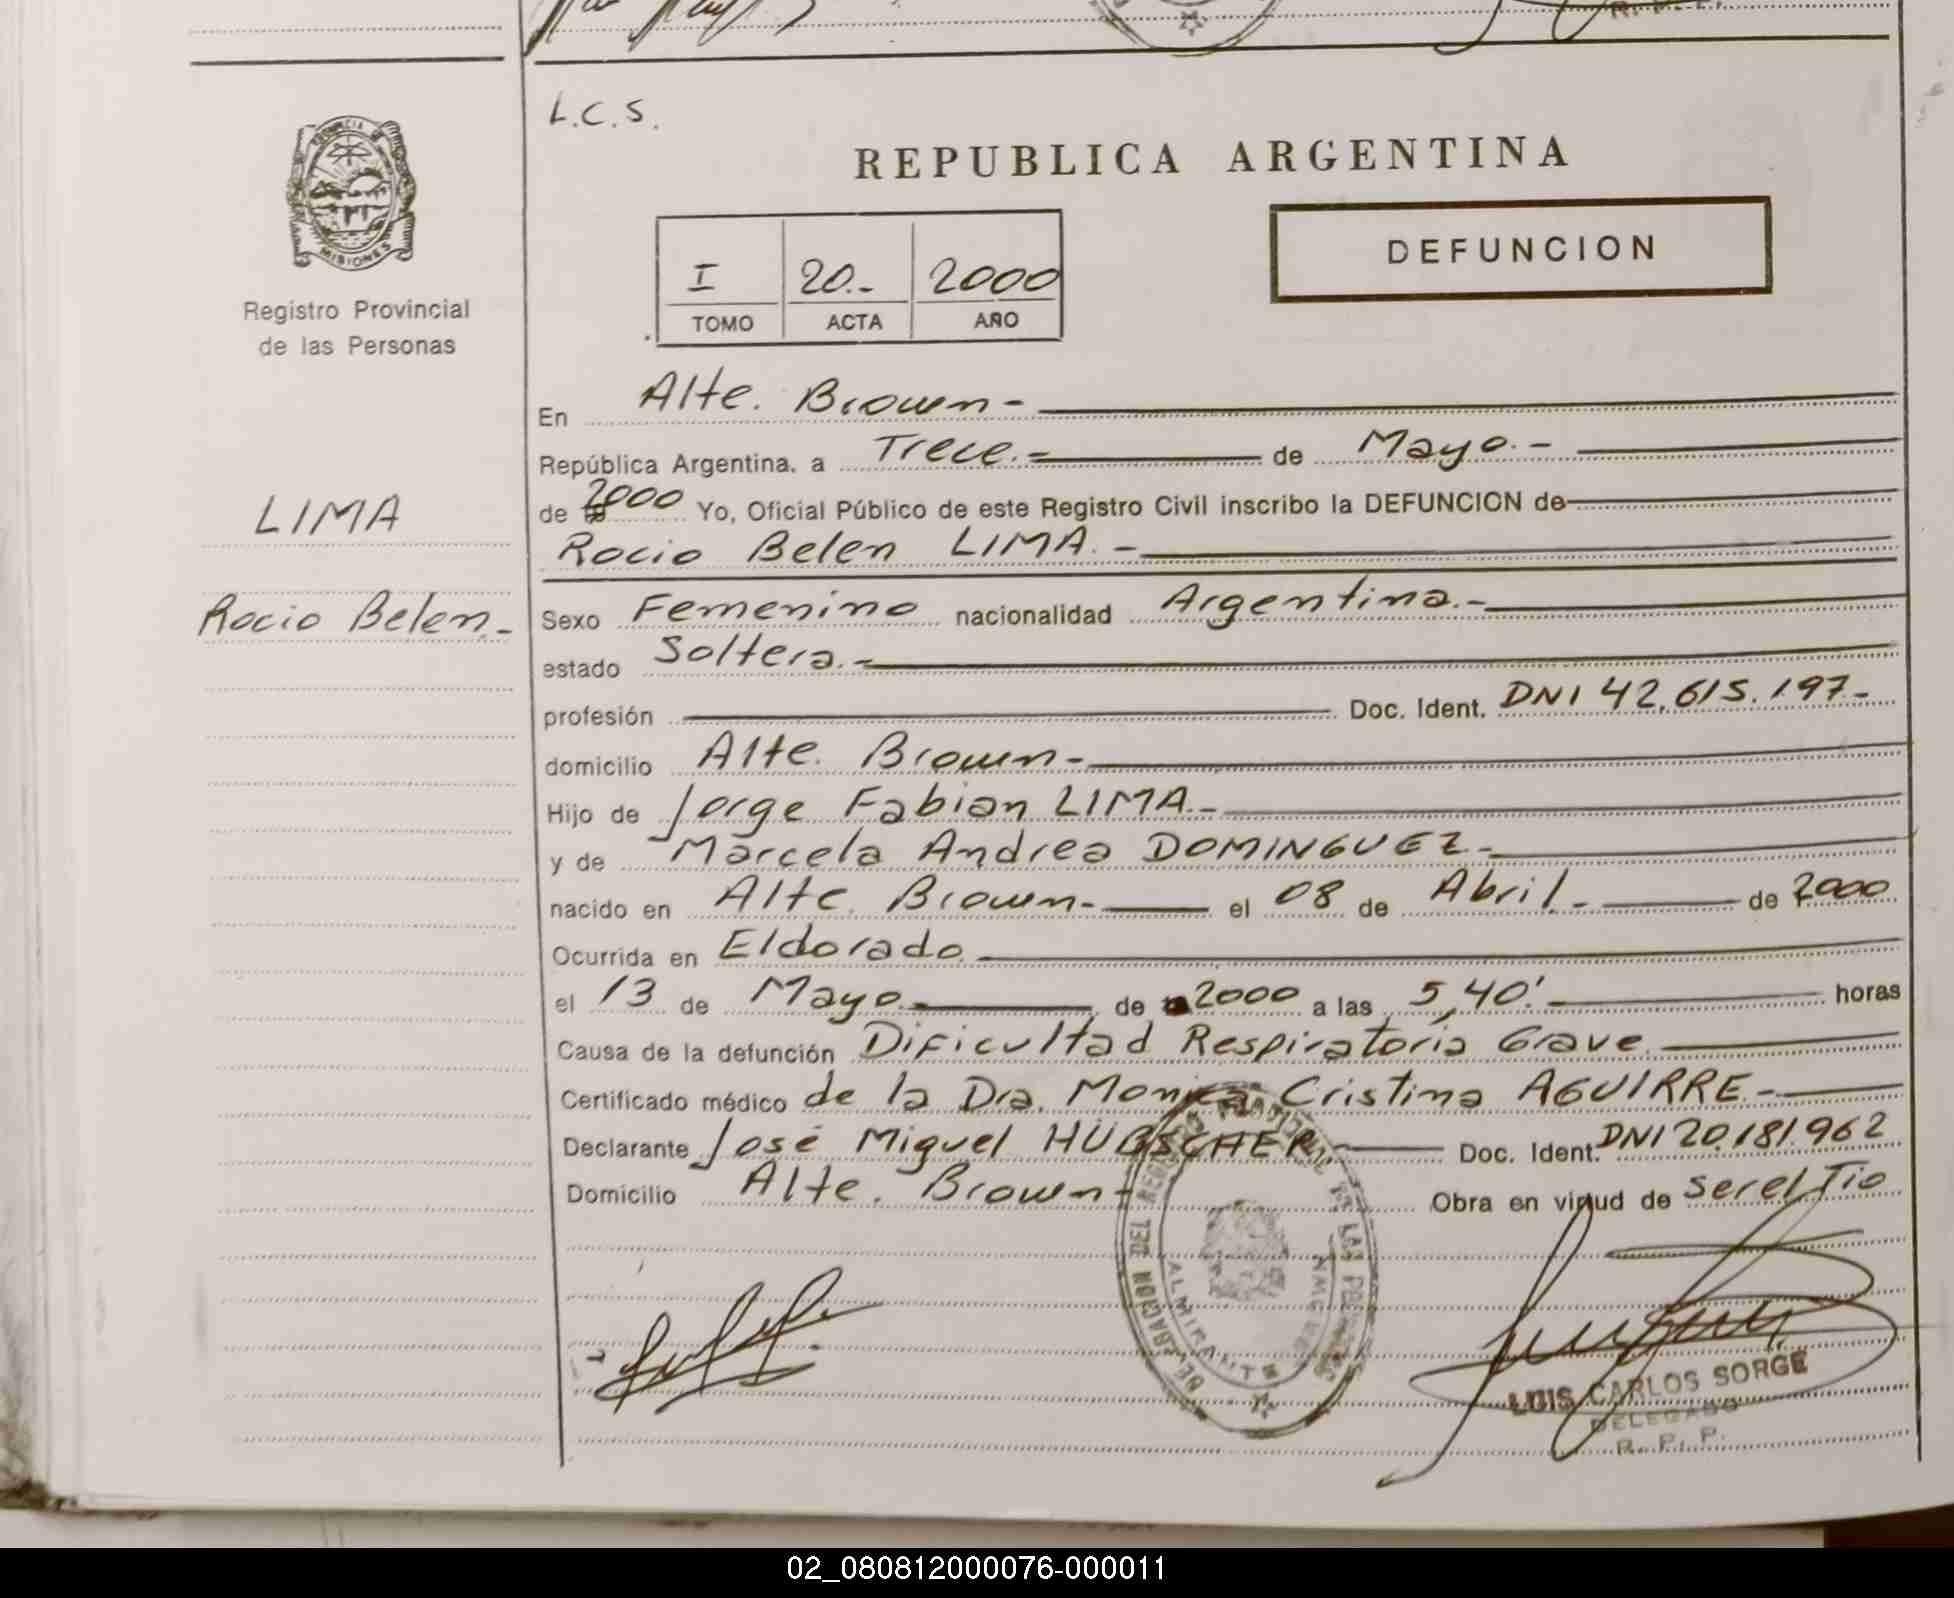 R. P. P.
L.C.S.
PROVINCIA DE
MISIONES
REPUBLICA ARGENTINA
DEFUNCION
I 20.- 2000
TOMO ACTA AÑO
Registro Provincial
de las Personas
En Alte. Brown-
República Argentina, a Trece.- de Mayo.-
de 2000 Yo, Oficial Público de este Registro Civil inscribo la DEFUNCION de
LIMA
Rocio Belen LIMA.-
Rocio Belen.-
Sexo Femenino nacionalidad Argentina.-
estado Soltera.-
profesión Doc. Ident. DNI 42.615.197.-
domicilio Alte. Brown-
Hijo de Jorge Fabian LIMA.-
y de Marcela Andrea DOMINGUEZ.-
nacido en Alte. Brown- el 08 de Abril.- de 2000
Ocurrida en Eldorado
el 13 de Mayo.- de 2000 a las 5,40.' horas
Causa de la defunción Dificultad Respiratoria Grave
Certificado médico de la Dra. Monica Cristina AGUIRRE.-
Declarante José Miguel HÜBSCHER.- Doc. Ident. DNI 20.181.962
Domicilio Alte. Brown- Obra en virtud de ser el Tio
DELEGACION DEL REGISTRO PROVINCIAL DE LAS PERSONAS
ALMIRANTE BROWN
LUIS CARLOS SORGE
DELEGADO
R. P. P.
02_080812000076-000011